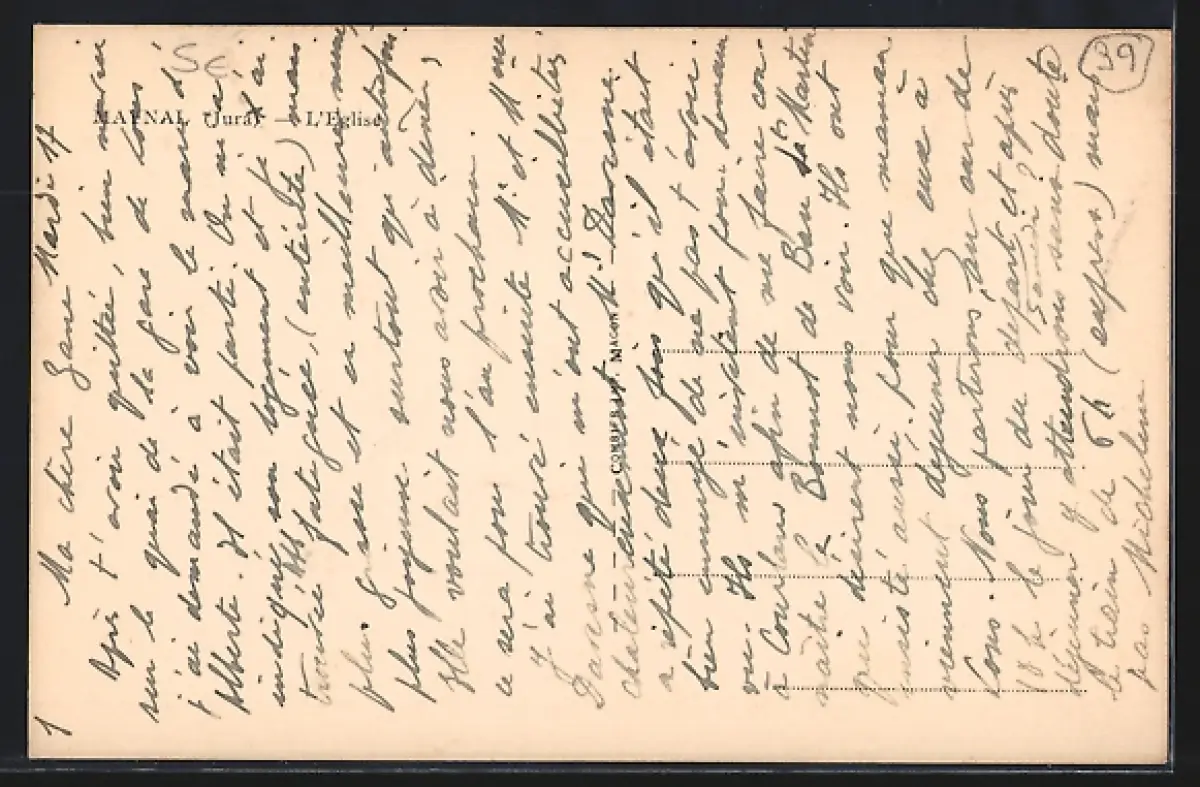 MAYNAL (Jura) — L'Eglise
COMBIER IMP. MACON
39
SE
1
Mardi 17
Ma chère Jane
Après t'avoir quittée, bien marrie
sur le quai de la gare de Lons
j'ai demandé à voir le mari d'
Alberte. Il était parti. On m'a
indiqué son logement et je l'ai
trouvée fatiguée, (entérite) mais
plus grasse et en meilleure mine
plus joyeuse surtout qu'autrefois
Elle voulait nous avoir à dîner,
ce sera pour l'an prochain.
J'ai trouvé ensuite Mr et Mme
Daresne qui m'ont accueillie
chaleureusement. Mr Daresne
a répété deux fois qu'il était
bien ennuyé de ne pas t'avoir
vue. Ils m'invitent pour demain
à Courlans afin de me faire con-
naître le Bonnot de Bau St Martin
que désirent nous voir. Ils ont
insisté aussi pour que maman
vienne déjeuner chez eux à
Lons. Nous partirons, au car de
18 h le jour du départ et après
samedi ?
déjeuner y attendrons sans doute
le train de 6h (express) mais
pas Micheline